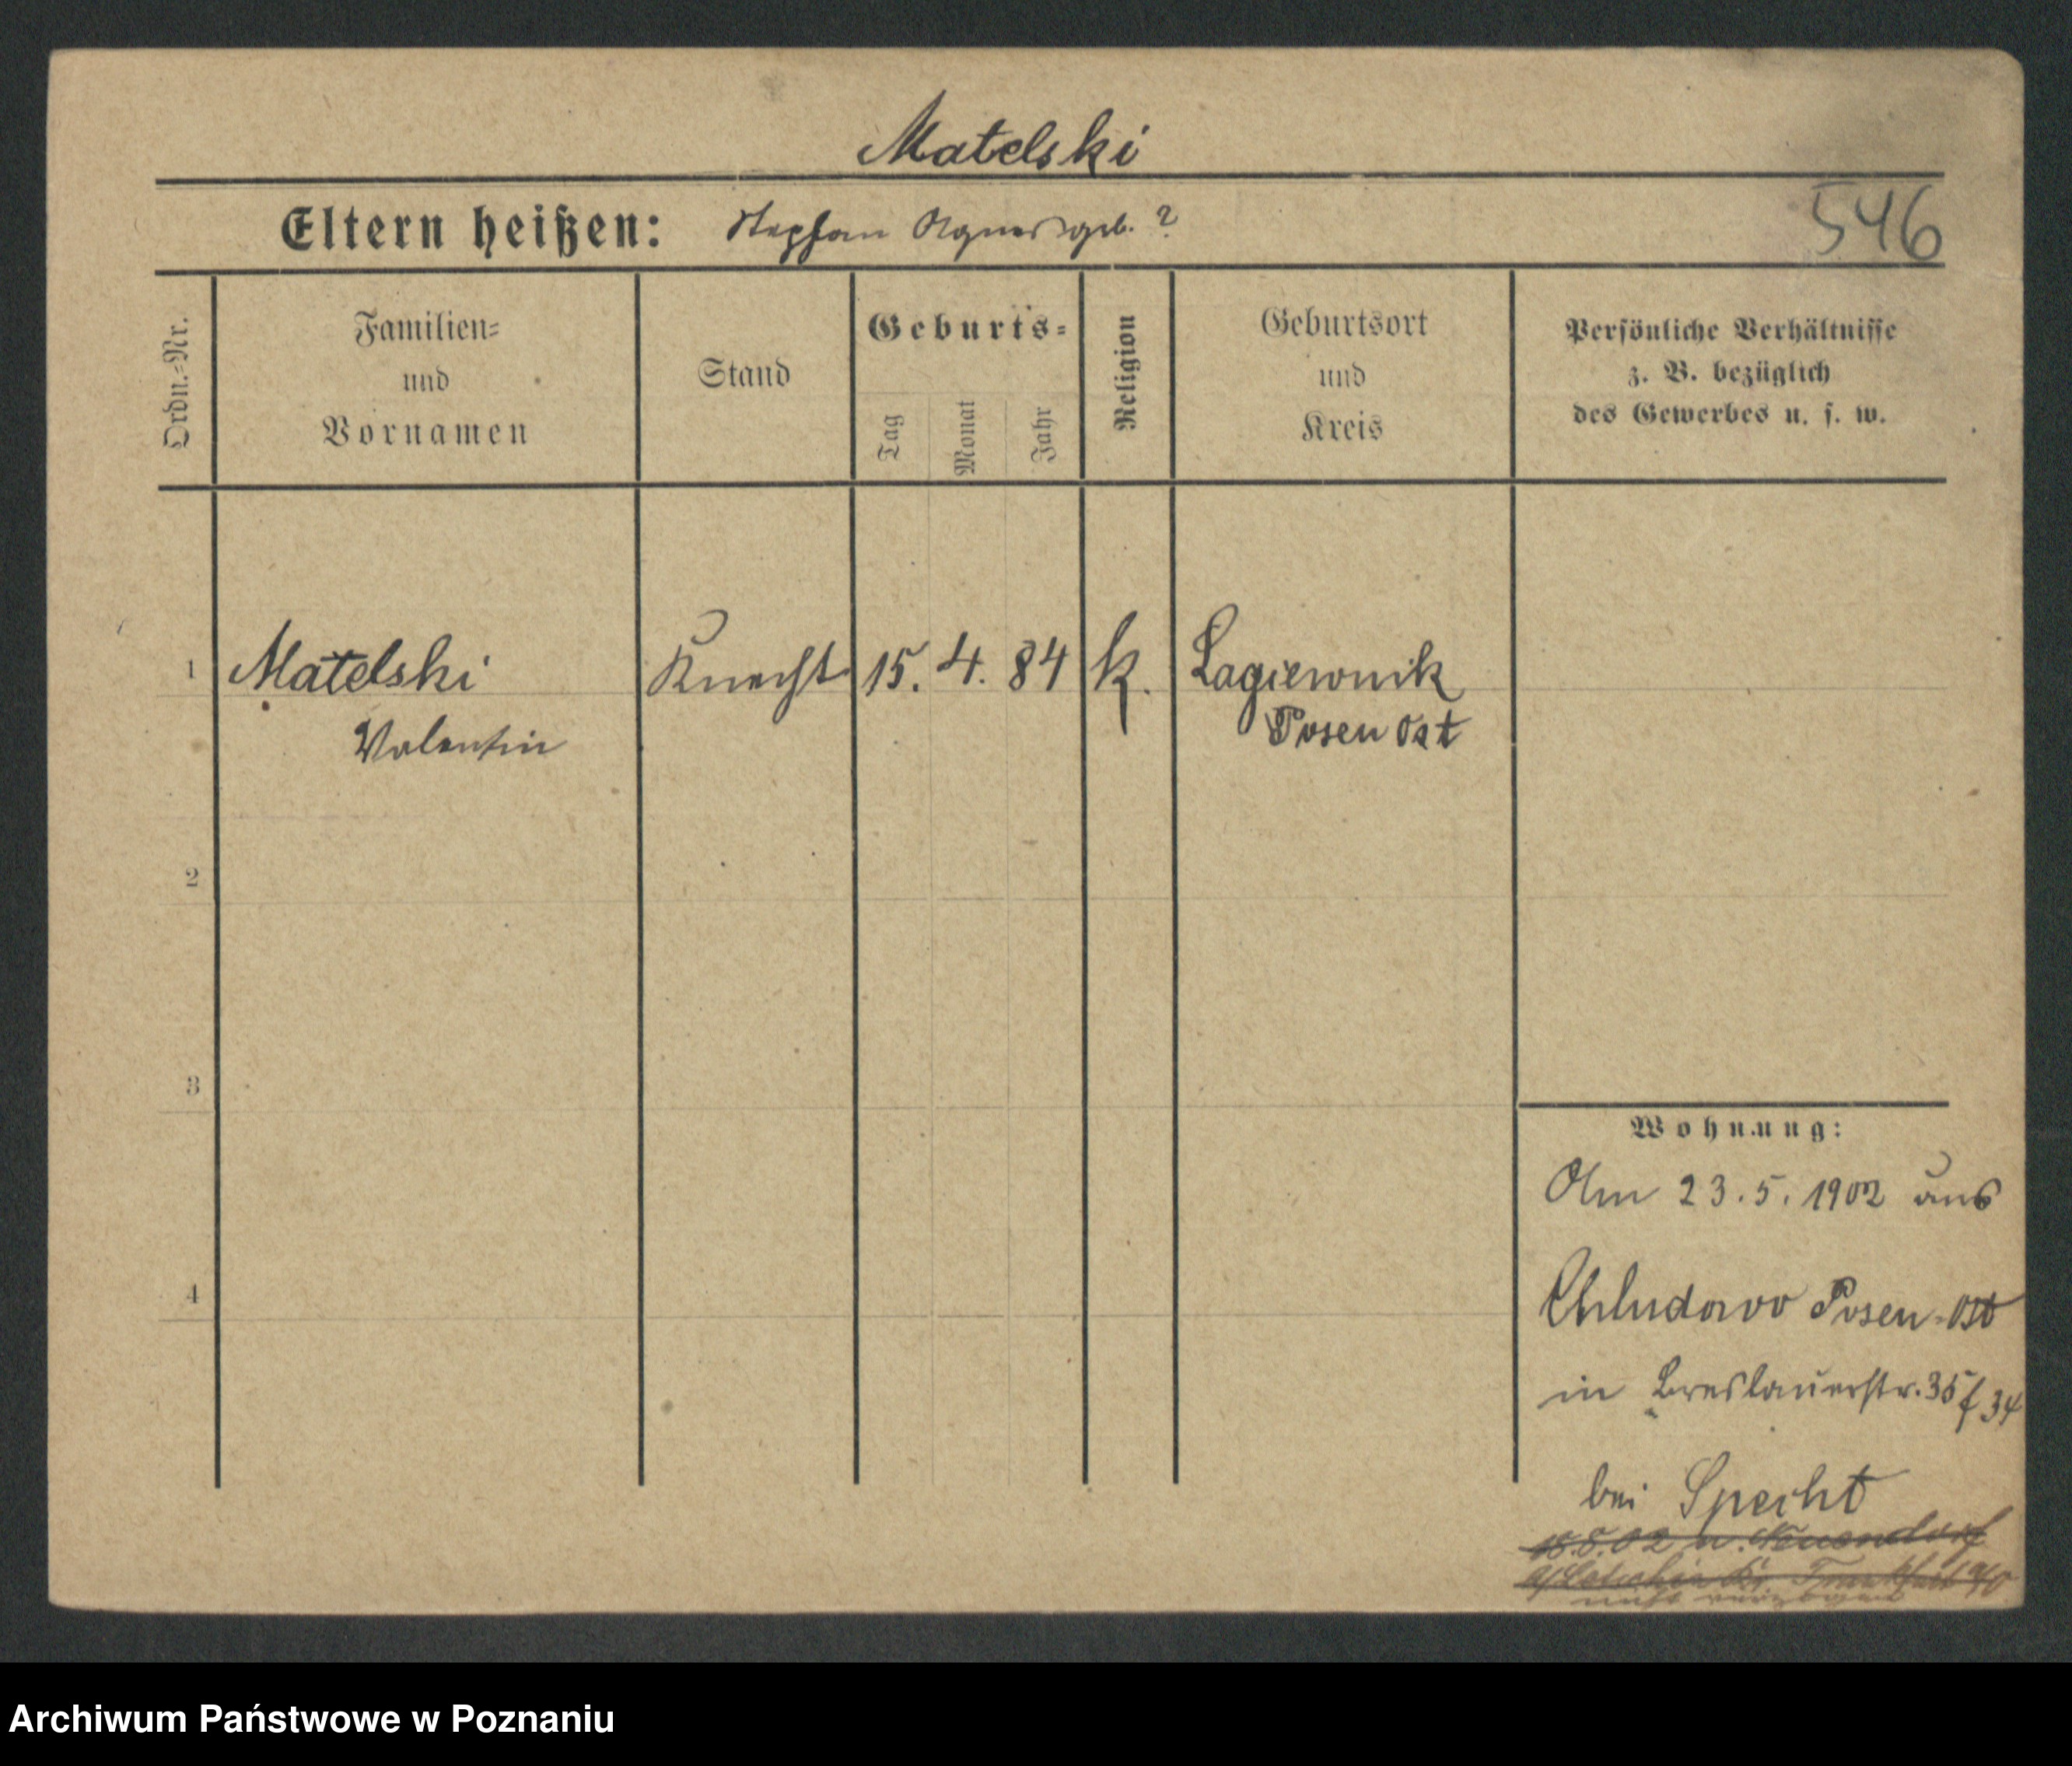 Matelski
Eltern heißen: Stephan Agnes geb. ?
546
Ordn.-Nr.
Familien-
und
Vornamen
Stand
Geburts-
Tag
Monat
Jahr
Religion
Geburtsort
und
Kreis
Persönliche Verhältnisse
z. B. bezüglich
des Gewerbes u. s. w.
1 Matelski Knecht 15. 4. 84 k. Lagiewnik
Valentin Posen Ost
2
3
4
Wohnung:
Am 23.5.1902 aus
Chludowo Posen-Ost
in Breslauerstr. 35/34
bei Specht
18.8.02 n. Neuendorf
Frankfurt a/O
Archiwum Państwowe w Poznaniu